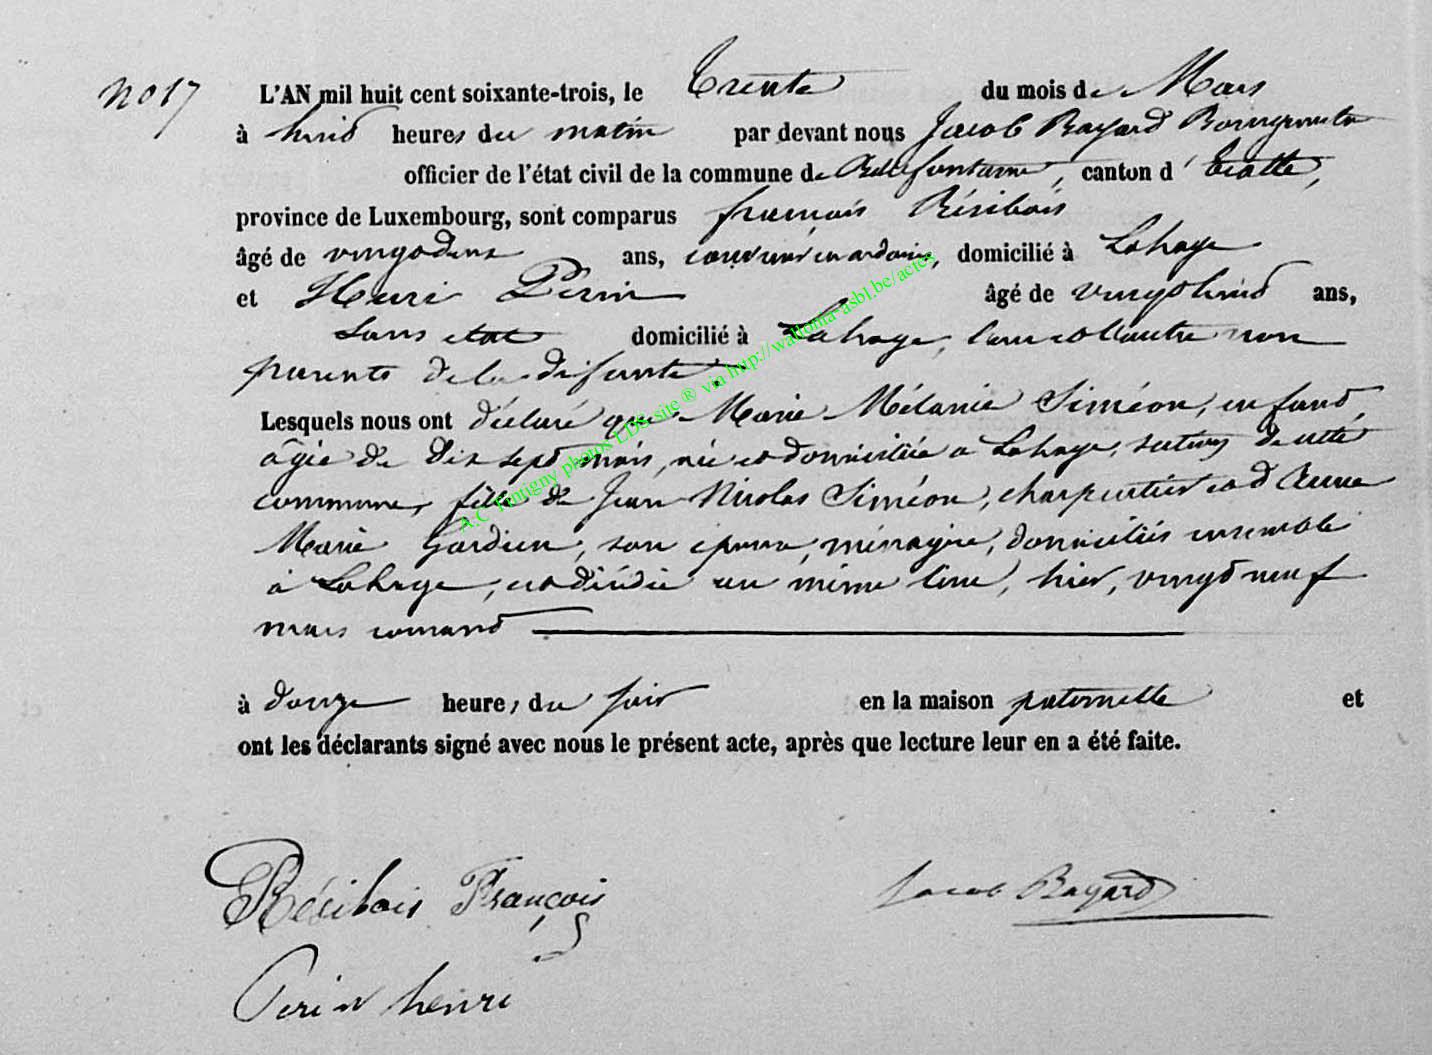 No 17
L'AN mil huit cent soixante-trois, le Trente du mois de Mars
à huit heures du matin par devant nous Jacob Bayard Bourgmestre
officier de l'état civil de la commune de Bellefontaine, canton d' Etalle,
province de Luxembourg, sont comparus françois Résibois
âgé de vingt deux ans, couvreur en ardoises, domicilié à Lahage
et Henri Perin âgé de vingt huit ans,
sans état domicilié à Lahage, l'un et l'autre non
parents de la défunte.
Lesquels nous ont déclaré que Marie Mélanie Siméon, enfant,
âgée de dix sept mois, née et domiciliée à Lahage, section de cette
commune, fille de Jean Nicolas Siméon, charpentier et d'Anne
Marie Gardien, son épouse, ménagère, domiciliés ensemble
à Lahage, est décédée au même lieu, hier, vingt neuf
mars courant
à douze heures du soir en la maison paternelle et
ont les déclarants signé avec nous le présent acte, après que lecture leur en a été faite.
Résibois François Jacob Bayard
Perin henri
A.C Tintigny photos LDS site ® via http://wallonia-asbl.be/actes